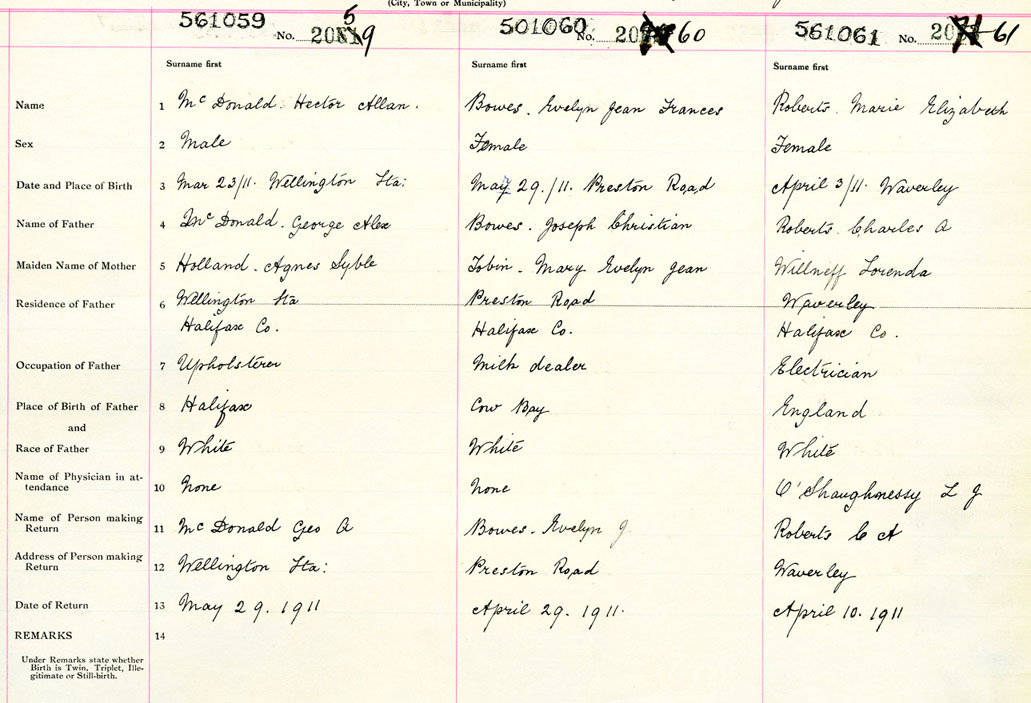 (City, Town or Municipality)
561059 No. 2059 501060 No. 2060 561061 No. 2061
Surname first Surname first Surname first
Name 1 Mc Donald. Hector Allan. Bowes. Evelyn Jean Frances Roberts. Marie Elizabeth
Sex 2 Male Female Female
Date and Place of Birth 3 Mar 23/11. Wellington Sta: May 29./11. Preston Road April 3/11 Waverley
Name of Father 4 Mc Donald. George Alex Bowes. Joseph Christian Roberts Charles A
Maiden Name of Mother 5 Holland. Agnes Syble Tobin. Mary Evelyn Jean Willneff Lorenda
Residence of Father 6 Wellington Sta Preston Road Waverley
Halifax Co. Halifax Co. Halifax Co.
Occupation of Father 7 Upholsterer Milk dealer Electrician
Place of Birth of Father 8 Halifax Cow Bay England
and
Race of Father 9 White White White
Name of Physician in at-
tendance 10 None None O'Shaughnessy L J
Name of Person making
Return 11 Mc Donald Geo A Bowes. Evelyn J Roberts C A
Address of Person making
Return 12 Wellington Sta: Preston Road Waverley
Date of Return 13 May 29. 1911 April 29. 1911. April 10. 1911
REMARKS 14
Under Remarks state whether
Birth is Twin, Triplet, Ille-
gitimate or Still-birth.